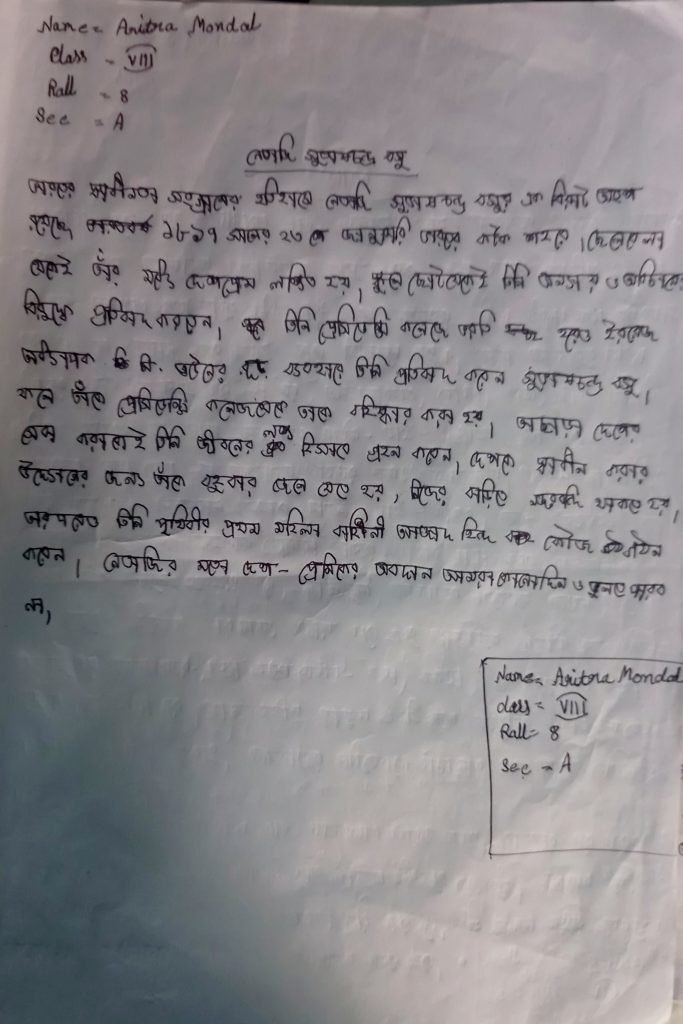 Name = Aritra Mondal
Class = VIII
Rall = 8
Sec = A
নেতাজি সুভাষচন্দ্র বসু
ভারতের স্বাধীনতা সংগ্রামের ইতিহাসে নেতাজি সুভাষচন্দ্র বসুর এক বিরাট
রয়েছে ১৮৯৭ সালের ২৩ শে জানুয়ারি ওড়িশার কটক শহরে । ছেলেবেলা
থেকেই তাঁর মধ্যে দেশপ্রেম লক্ষিত হয়, ছোটো থেকেই তিনি অন্যায় ও
বিরুদ্ধে প্রতিবাদ করতেন, তিনি প্রেসিডেন্সি কলেজে ভর্তি হয়েও ইংরেজ
অধ্যাপক মি. ওটেনের তিনি প্রতিবাদ করেন সুভাষচন্দ্র বসু,
ফলে তাঁকে প্রেসিডেন্সি কলেজ থেকে তাকে বহিষ্কার করা হয় । এছাড়া দেশের
সেবা করাকেই তিনি জীবনের লক্ষ্য হিসাবে গ্রহন করেন, দেশকে স্বাধীন করার
জন্য তাঁকে বহুবার জেলে যেতে হয়, নিজের বাড়িতে থাকতে হয়,
তিনি পৃথিবীর প্রথম মহিলা বাহিনী আজাদ হিন্দ ফৌজ গঠন
করেন । নেতাজির মতো দেশ - প্রেমিকের অবদান আমরা কোনোদিন ও ভুলতে পারব
না,
Name = Aritra Mondal
class = VIII
Rall = 8
Sec = A